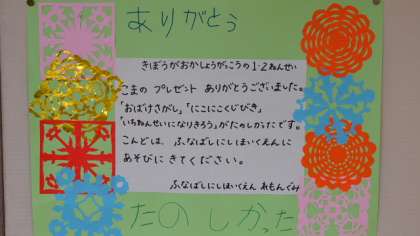 ありがとう
きぼうがおかしょうがっこうの1・2ねんせい
こまの プレゼント ありがとうございました。
「おばけさがし」「にこにこくじびき」
「いちねんせいになりきろう」がたのしかったです。
こんどは、ふなばしにしほいくえんに
あそびに きてください。
ふなばしにしほいくえん れもんぐみ
たのしかった